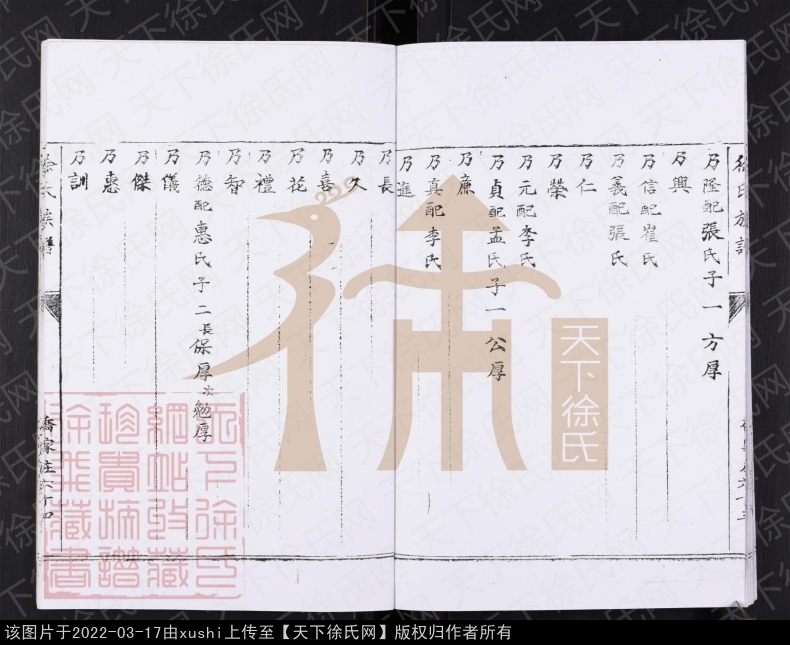 徐氏族譜
乃隆配張氏子一方厚
乃興
乃信配崔氏
乃義配張氏
乃仁
乃榮
乃元配李氏
乃貞配孟氏子一公厚
乃廉
乃真配李氏
乃進
乃長
乃久
乃喜
乃花
乃禮
乃智
乃德配惠氏子二長保厚次勉厚
乃儀
乃傑
乃惠
乃訓
徐氏族譜
喬家庄六十四
天下徐氏
天下徐氏网
该图片于2022-03-17由xushi上传至【天下徐氏网】版权归作者所有